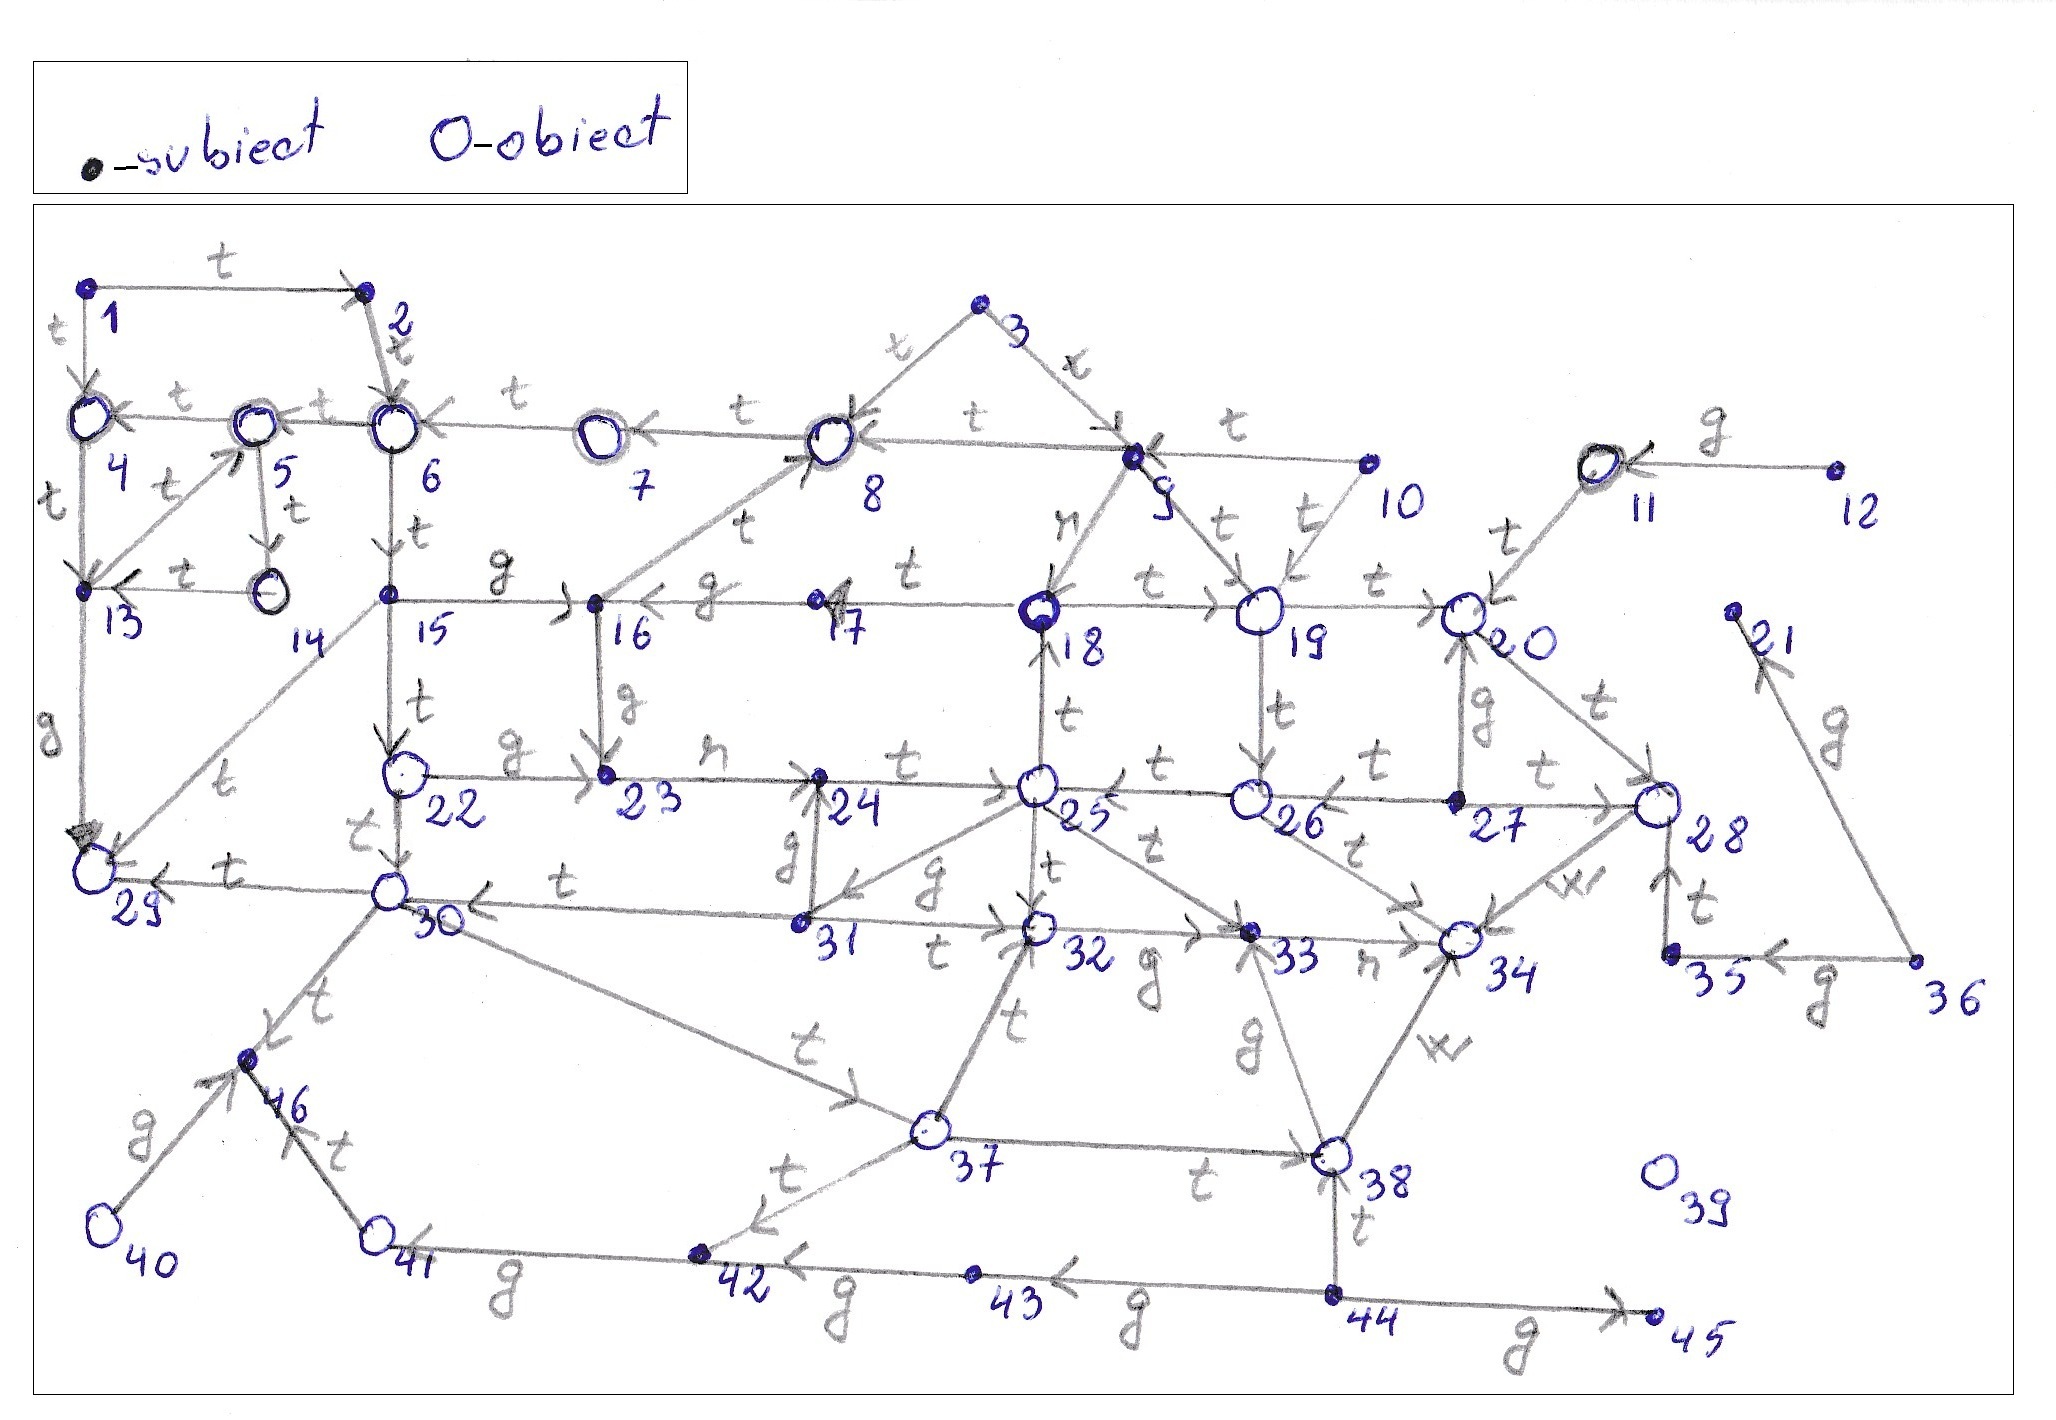 ●-subiect O-obiect
t
1 2 3
t t t t
t t t t t t g
4 5 6 7 8 9 10 11 12
t t t t t r t t t
t g g t t t
13 14 15 16 17 18 19 20 21
g t t g t t g t g
g r t t t t
22 23 24 25 26 27 28
t g g t t t w t
t t g r g
29 30 31 32 33 34 35 36
t t t g w
g t t t
46 37 38 39
t
40 41 42 43 44 45
g g g g